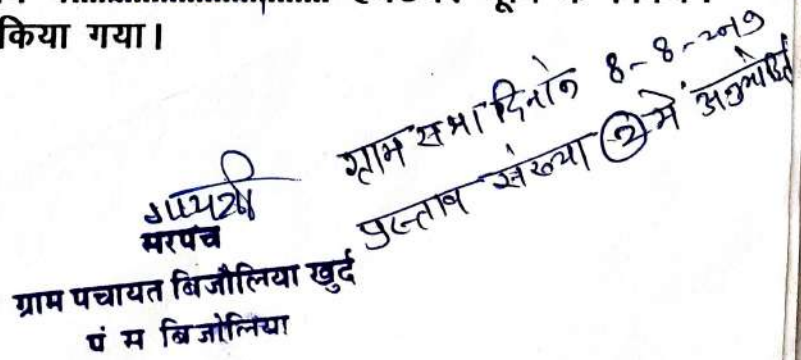 किया गया।
ग्राम सभा दिनांक 8-8-2017
प्रस्ताव संख्या 2 में अनुमोदित
गायत्री
सरपंच
ग्राम पंचायत बिजौलिया खुर्द
पं स बिजोलिया